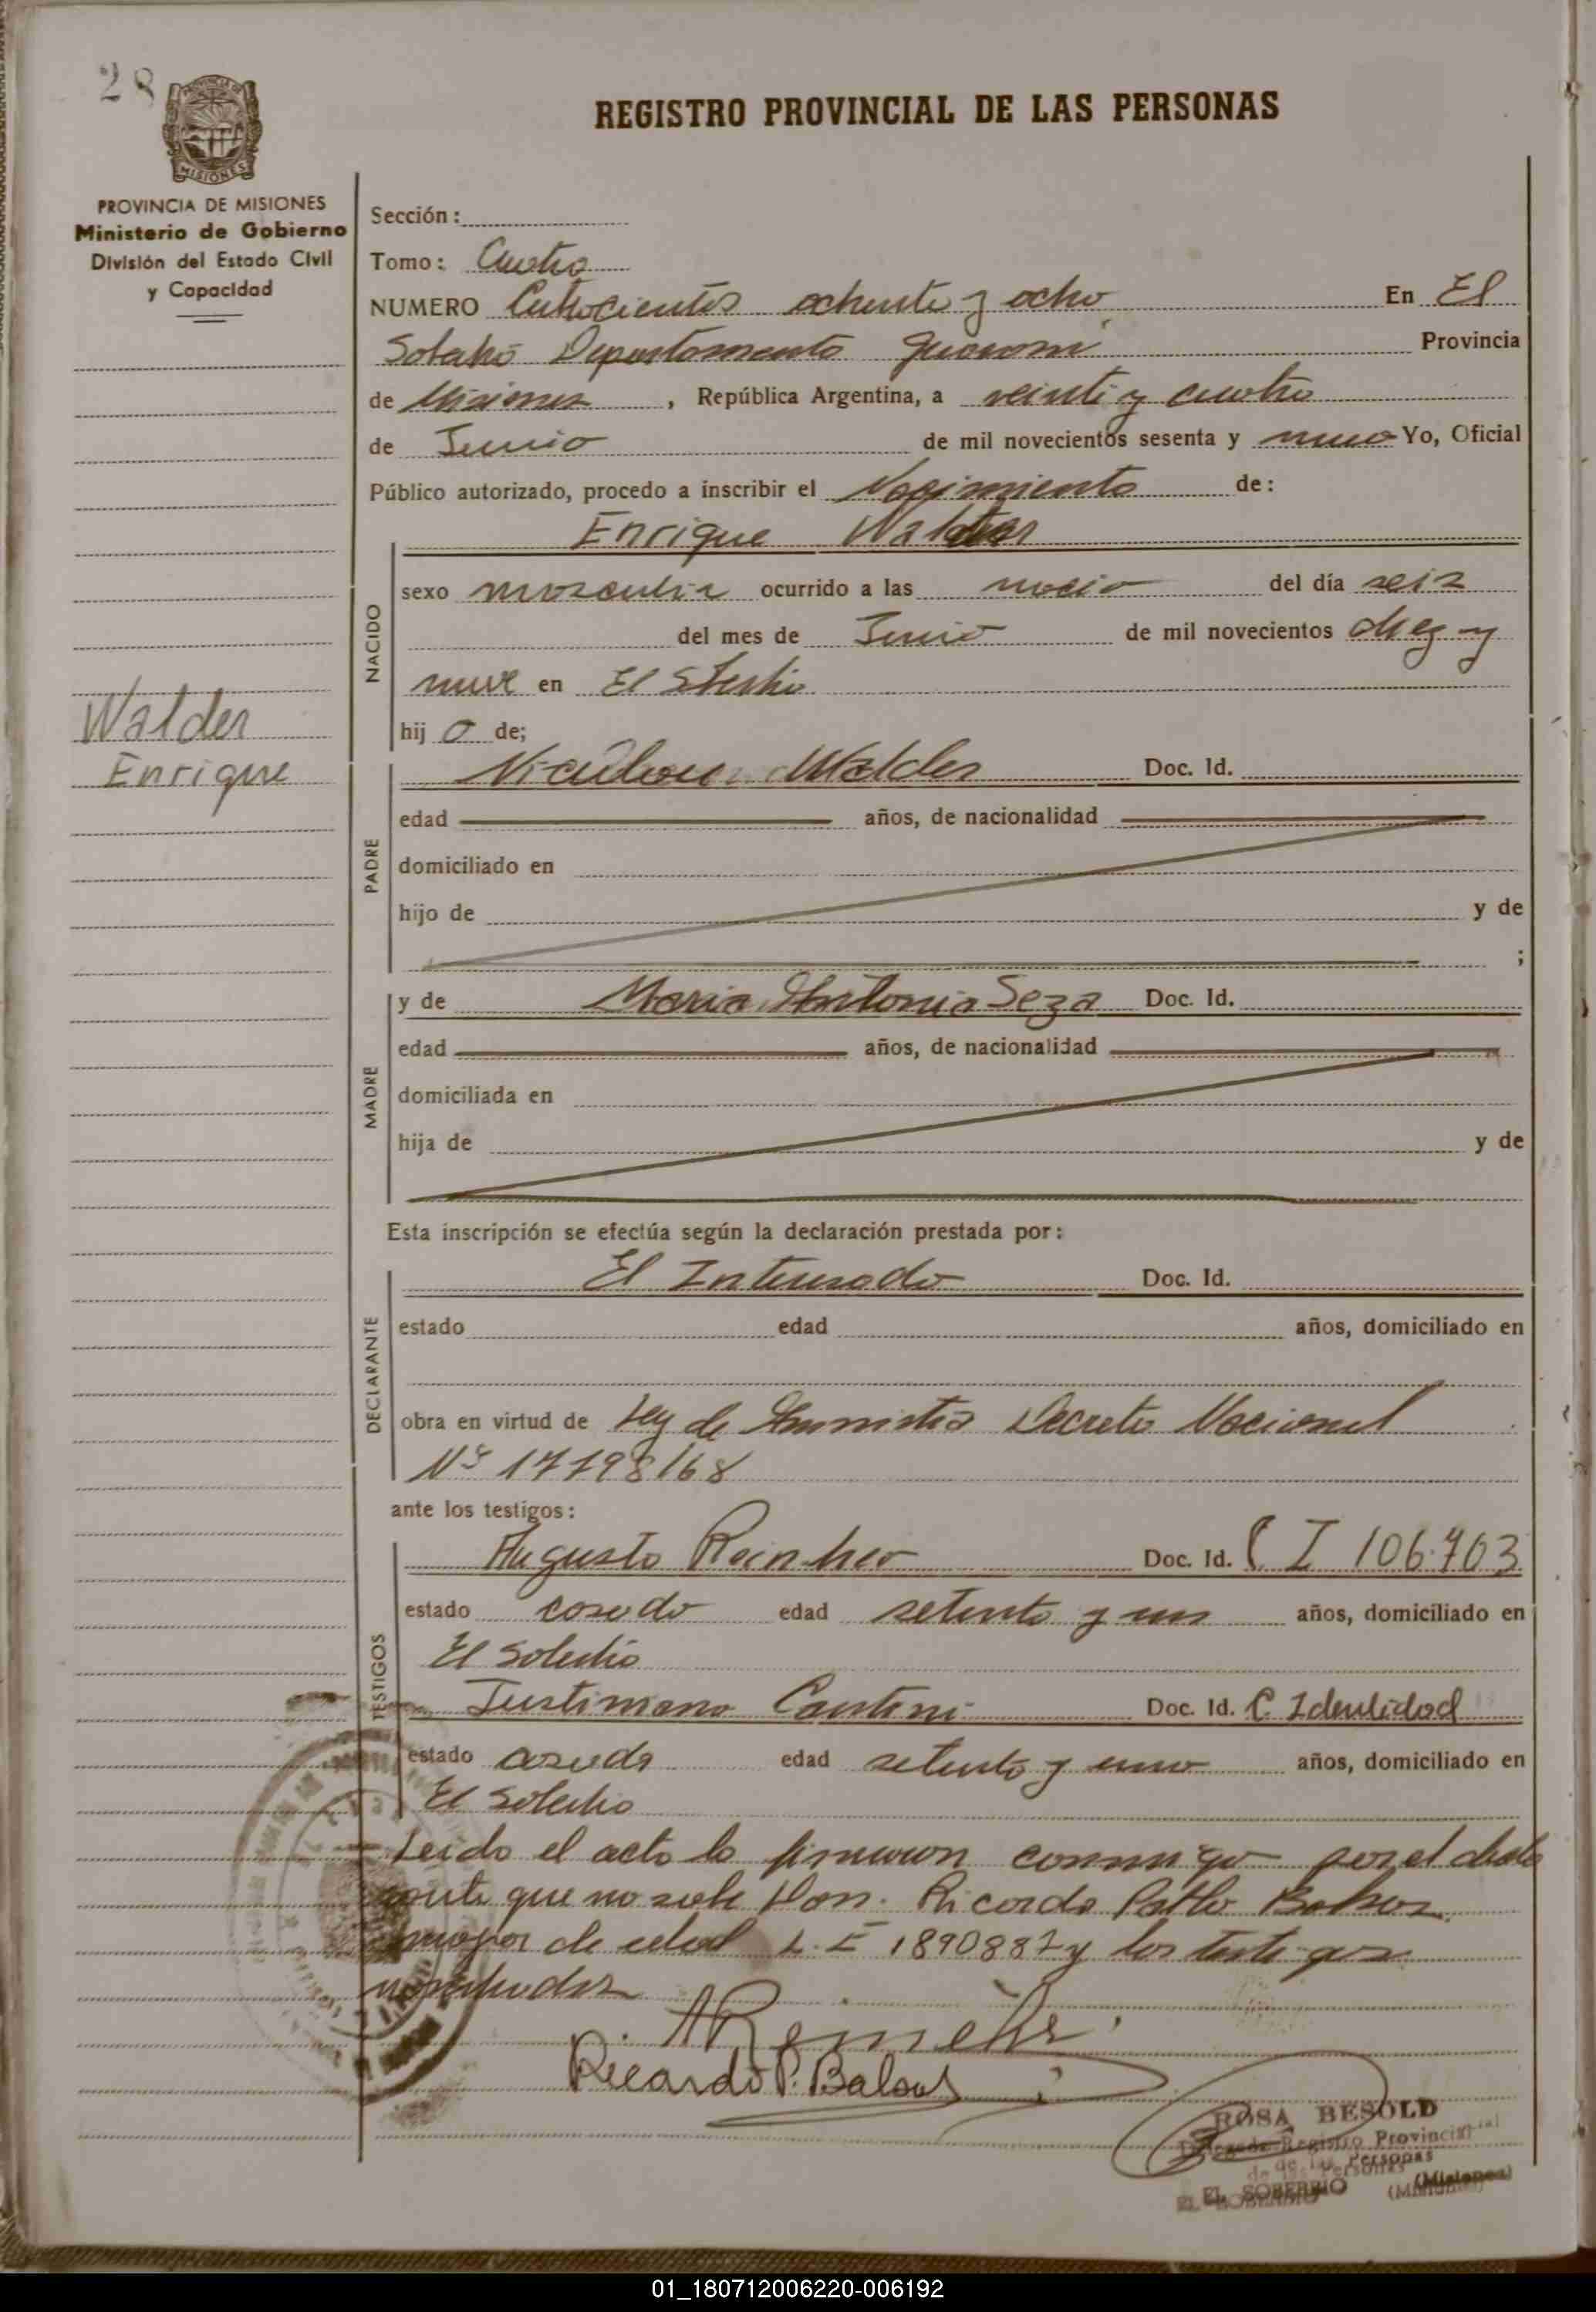 28
REGISTRO PROVINCIAL DE LAS PERSONAS
MISIONES
PROVINCIA DE MISIONES
Ministerio de Gobierno
División del Estado Civil
y Capacidad
Sección:
Tomo: Cuatro
NUMERO Cuatrocientos ochenta y ocho En El
Departamento Guarani Provincia
de Misiones, República Argentina, a veinti y cuatro
de Junio de mil novecientos sesenta y nueve Yo, Oficial
Público autorizado, procedo a inscribir el Nacimiento de:
Enrique Walder
NACIDO
sexo masculin ocurrido a las del día seis
del mes de Junio de mil novecientos diez y
nueve en El
Walder
Enrique
hijo de;
PADRE
Walder Doc. Id.
edad años, de nacionalidad
domiciliado en
hijo de y de
;
MADRE
y de Maria Antonia Seza Doc. Id.
edad años, de nacionalidad
domiciliada en
hija de y de
Esta inscripción se efectúa según la declaración prestada por:
DECLARANTE
El Interesado Doc. Id.
estado edad años, domiciliado en
obra en virtud de Ley de Amnistia Decreto Nacional
Nº 17798/68
ante los testigos:
TESTIGOS
Augusto Doc. Id. C I 106.703
estado casado edad setenta y un años, domiciliado en
El
Justiniano Doc. Id. C. Identidad
estado casado edad setenta y uno años, domiciliado en
El
Leido el acta la firmaron conmigo por el
que no sabe Don. Ricardo Pablo
mayor de edad L. E 1890887 y los testigos
nombrados
Ricardo P.
ROSA BESOLD
Delegada Registro Provincial
de las Personas
EL SOBERBIO (Misiones)
01_180712006220-006192